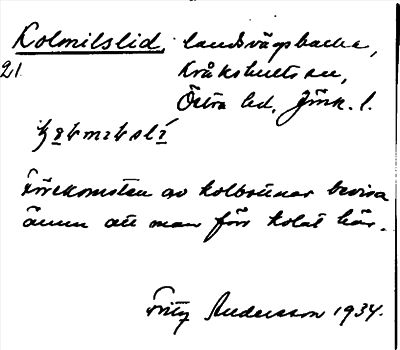 Kolmilslid, landsvägsbacke,
21. Kråkshults sn,
Östra hd, Jönk. l.
Förekomsten av kolbottnar bevisa
ännu att man förr kolat här.
Fritz Andersson 1934.